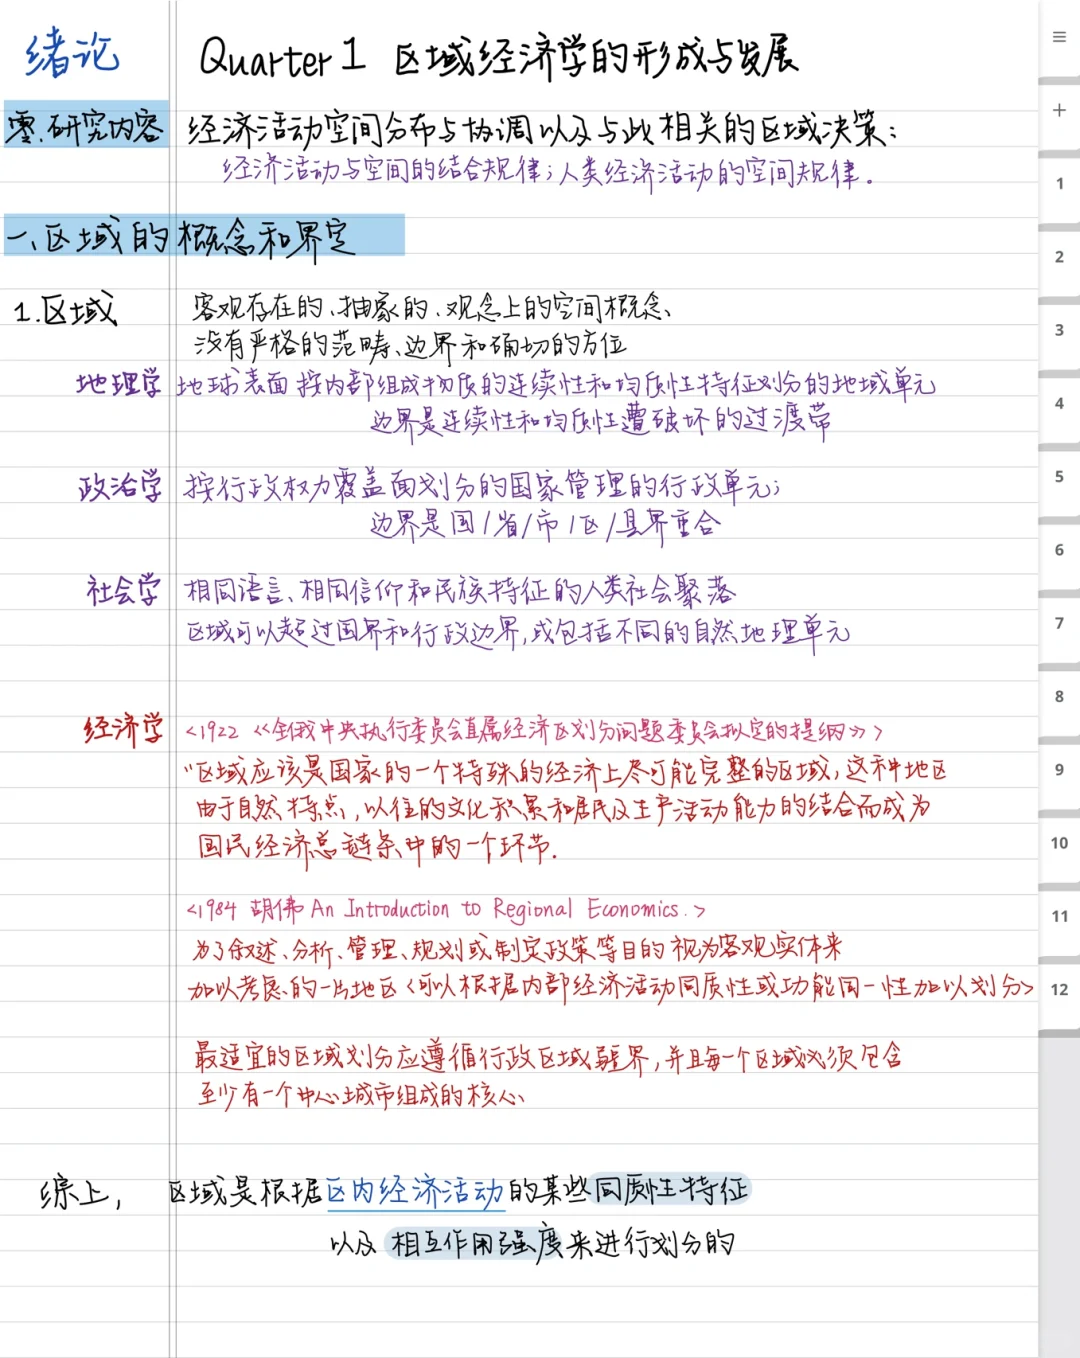 绪论 Quarter 1 区域经济学的形成与发展
零.研究内容 经济活动空间分布与协调以及与此相关的区域决策:
经济活动与空间的结合规律;人类经济活动的空间规律.
一、区域的概念和界定
1.区域 客观存在的、抽象的、观念上的空间概念、
没有严格的范畴、边界和确切的方位
地理学 地球表面按内部组成物质的连续性和均质性特征划分的地域单元
边界是连续性和均质性遭破坏的过渡带
政治学 按行政权力覆盖面划分的国家管理的行政单元;
边界是国/省/市/区/县界重合
社会学 相同语言、相同信仰和民族特征的人类社会聚落
区域可以超过国界和行政边界,或包括不同的自然地理单元
经济学 <1922 《全俄中央执行委员会直属经济区划分问题委员会拟定的提纲》>
“区域应该是国家的一个特殊的经济上尽可能完整的区域,这种地区
由于自然特点,以往的文化积累和居民及生产活动能力的结合而成为
国民经济总链条中的一个环节.
<1984 胡佛 An Introduction to Regional Economics.>
为了叙述、分析、管理、规划或制定政策等目的视为客观实体来
加以考虑的一片地区<可以根据内部经济活动同质性或功能同一性加以划分>
最适宜的区域划分应遵循行政区域疆界,并且每一个区域必须包含
至少有一个中心城市组成的核心、
综上, 区域是根据区内经济活动的某些同质性特征
以及相互作用强度来进行划分的
1
2
3
4
5
6
7
8
9
10
11
12